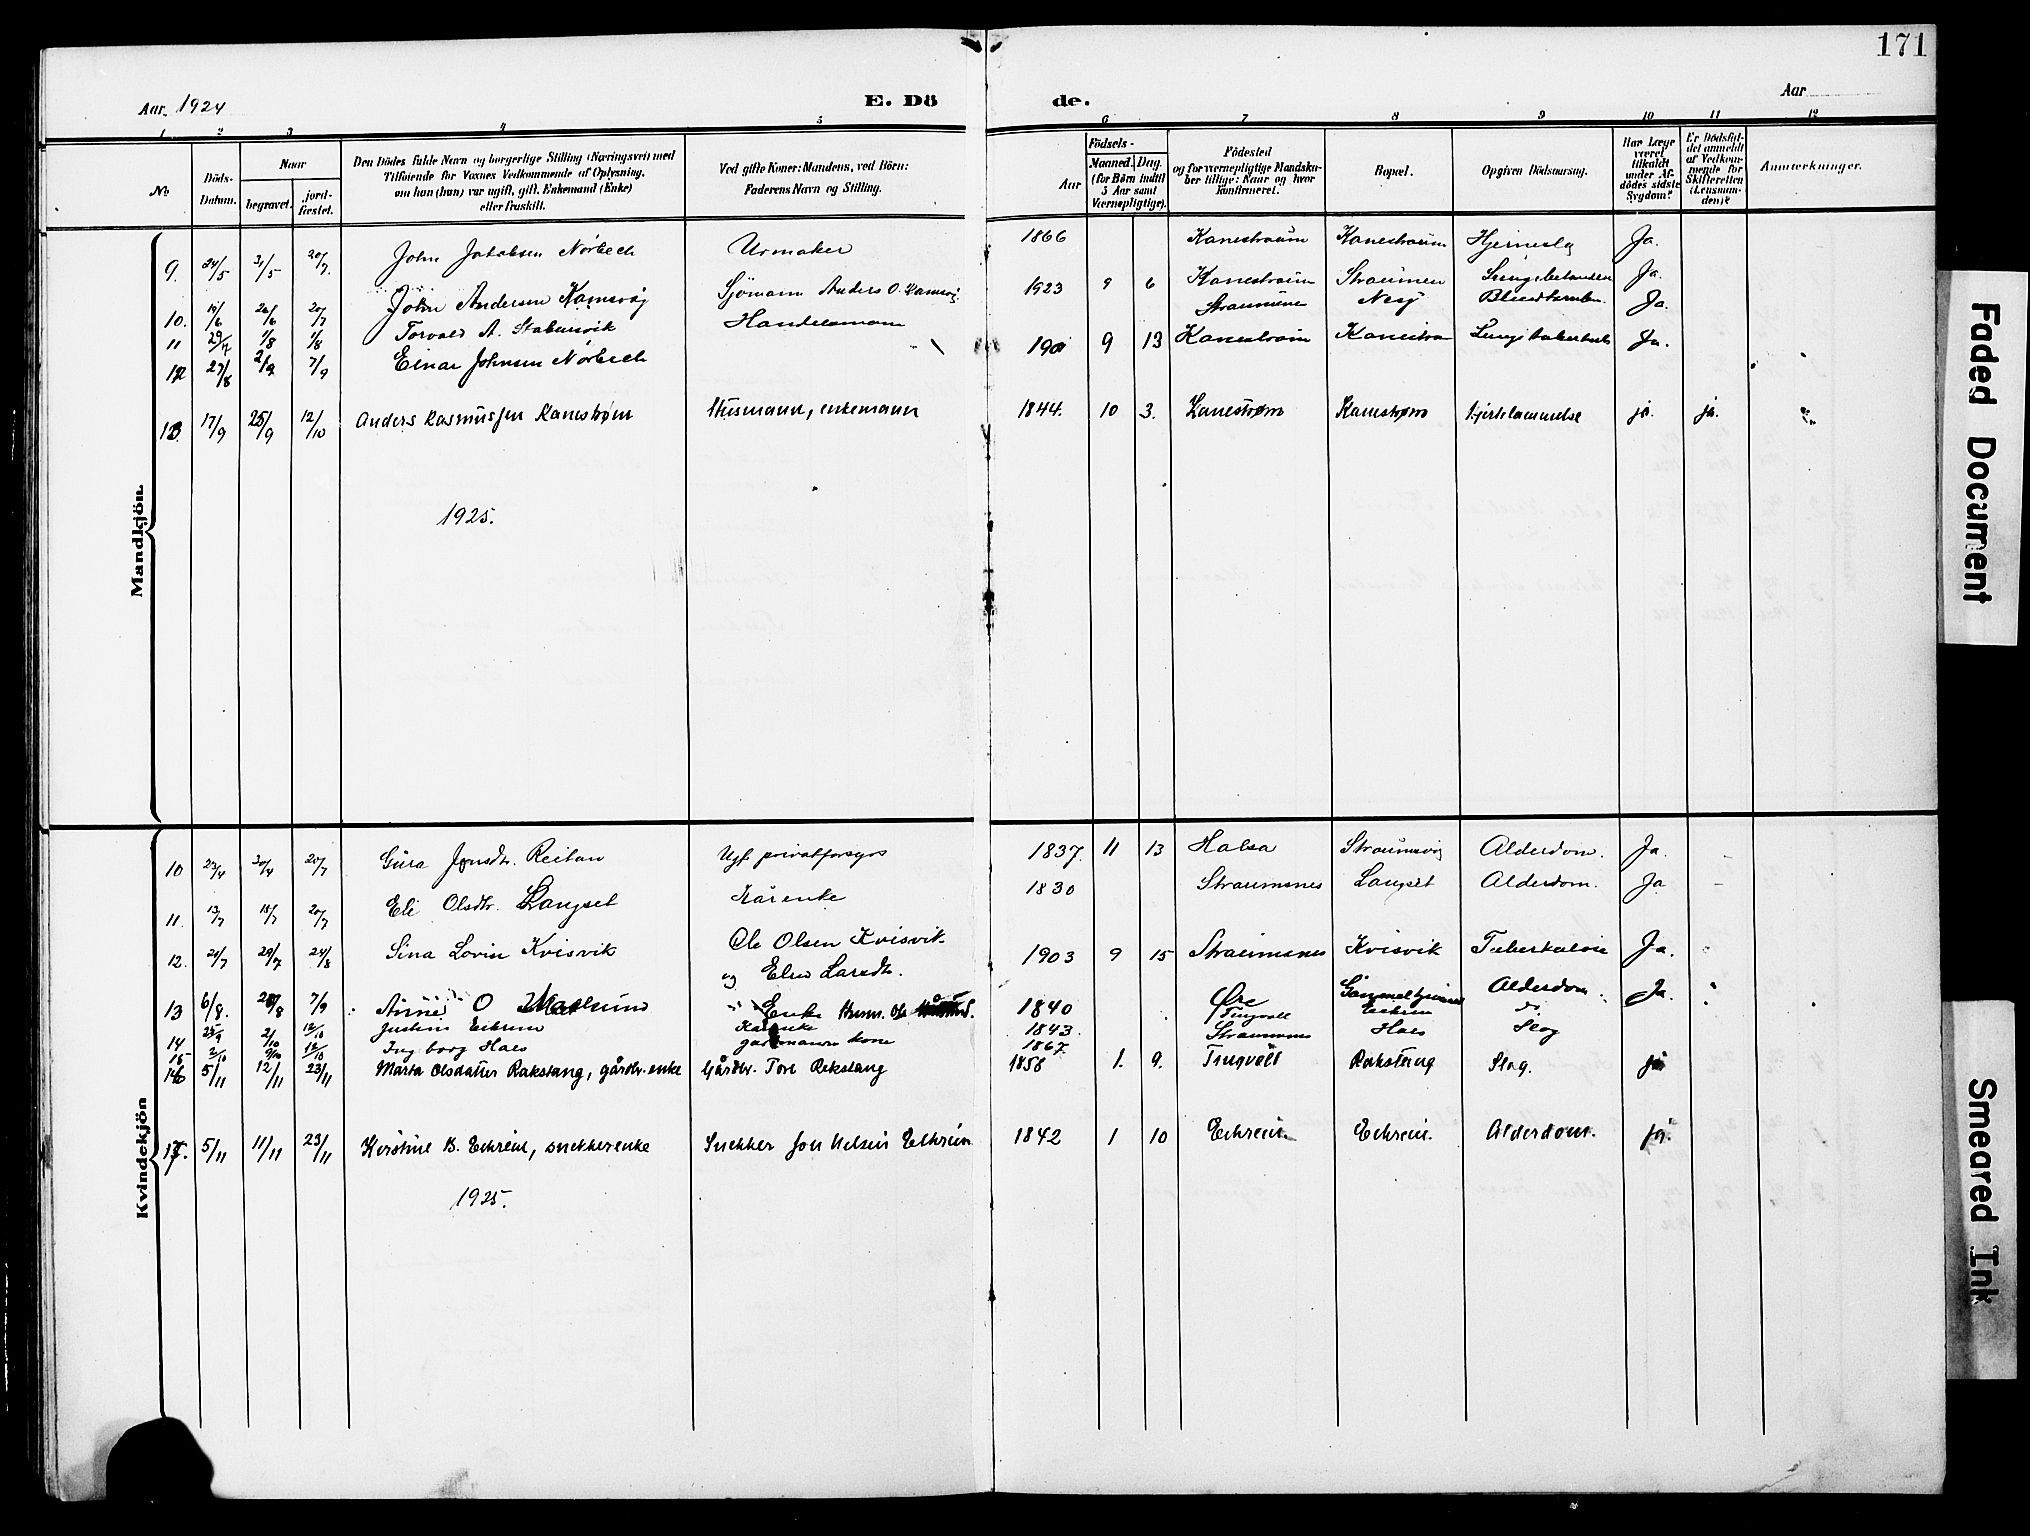 171
Aar 1924 E. Dö de. Aar
1 2 3 4 5 6 7 8 9 10 11 12
No
Döds-Datum.
Naar
begravet.
jord-fæstet.
Den Dödes fulde Navn og borgerlige Stilling (Næringsvei) med
Tilföiende for Voxnes Vedkommende af Oplysning,
om han (hun) var ugift, gift, Enkemand (Enke)
eller fraskilt.
Ved gifte Koner: Mandens, ved Börn:
Faderens Navn og Stilling.
Födsels-
Aar
Maaned. Dag.
(for Börn indtil
5 Aar samt
Værnepligtige).
Födested
og for værnepligtige Mandska-
ber tillige: Naar og hvor
konfirmeret.
Bopæl.
Opgiven Dödsaarsag.
Har Læge
været
tilkaldt
under Af-
dödes sidste
Sygdom?
Er Dödsfal-
det anmeldt
af Vedkom-
mende for
Skifteretten
(Lensman-
den)?
Anmærkninger.
Mandkjön.
9. 24/5 31/5 20/7. John Jakobsen Nörbech Urmaker 1866 Kanestraum Kanestraum Hjerneslag Ja.
10. 19/6 26/6 20/7 John Andersen Kamsvåg Sjömann Anders O. Kamsvåg 1923 9 6 Kanestraum Straumen Ja.
11 29/7 1/8 1/8 Torvald A. Stakensvik Handelsmann Straumsnes Blindtarmbet. Ja.
12 27/8 2/9 7/9 Einar Johnsen Nörbech 190 9 13 Kanestraum Kanestra Ja.
13. 17/9 25/9 12/10 Anders Rasmussen Kanestrøm Husmann, enkemann 1844. 10 3. Kanestrøm Kanestrøm Hjertelammelse ja. ja.
1925.
Kvindekjön
10 23/4 30/4 20/7 Gura Jonsdtr. Reitan Ugt. privatforsyn 1837. 11 13 Halsa Straumsvig Alderdom. Ja.
11. 13/7 18/7 20/7 Eli Olsdtr. Langset Kårenke 1830 Straumsnes Langset Alderdom. Ja
12. 20/7 29/7 24/8 Sina Lovise Kvisvik Ole Olsen Kvisvik 1903 9 15 Straumsnes Kvisvik Tuberkulose Ja.
og Elen Larsdtr.
13 6/8. 20/8 7/9 Anne O Enke Husm. Ole 1840 Øre Alderdom Ja.
14 25/9 2/10 12/10 Justine Eikrem Kårenke 1843. Tingvoll Eikrem do
15 2/10 9/10 12/10 Ingborg Haes gårdmann kone 1867. Straumsnes Haes Slag
16 5/11 12/11 23/11 Marta Olsdatter Rakstang, gårdbr. enke Gårdbr. Tore Rekstang 1858 1. 9. Tingvoll Rakstang Slag. ja
17. 5/11 11/11 23/11 Kirstine B. Eikrem, snekkerenke Snekker Jon Nilsen Eikrem 1842 1 10 Eikrem. Eikrem. Alderdom. ja.
1925.
Faded Document
Smeared Ink